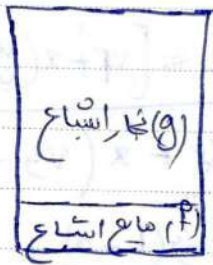 (g) بخار اشباع
(f) مایع اشباع